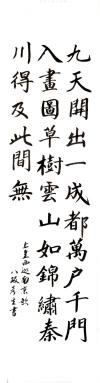 九天開出一成都萬戶千門
入畫圖草樹雲山如錦繡秦
川得及此間無
上皇西巡南京歌
八 彥生書